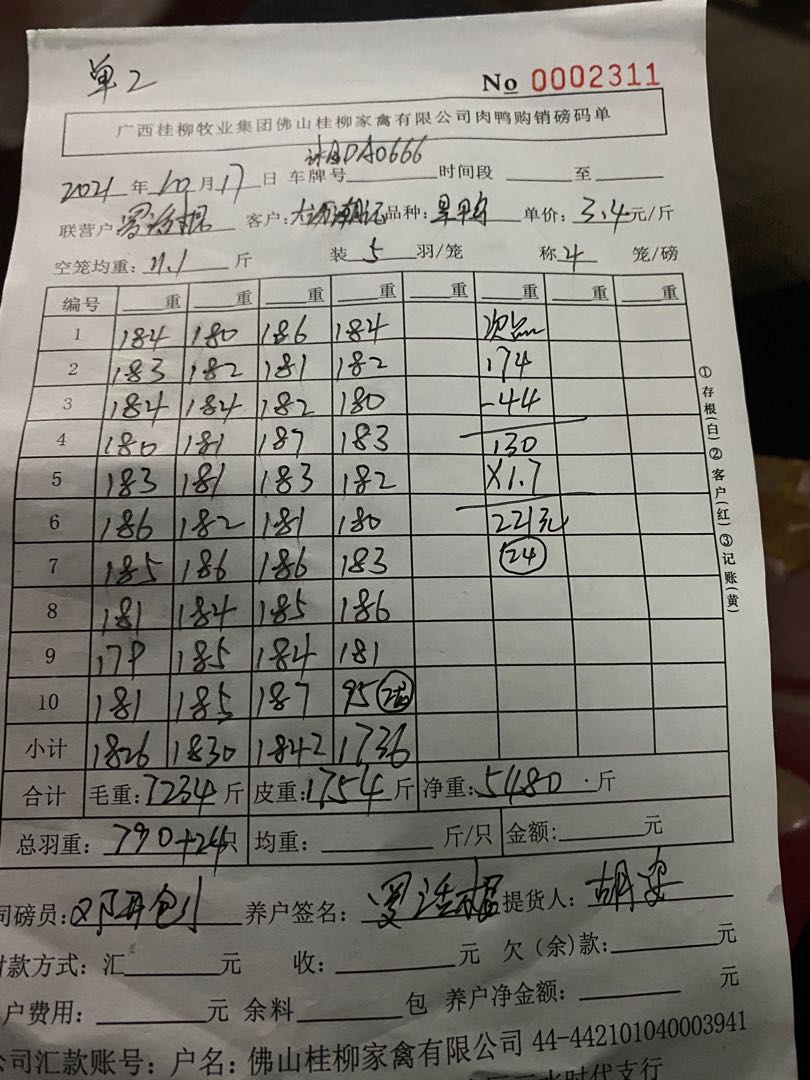 单2
No 0002311
广西桂柳牧业集团佛山桂柳家禽有限公司肉鸭购销磅码单
DA0666
2021 年 10 月 17 日 车牌号 时间段 至
联营户 客户: 品种: 单价: 3.4 元/斤
空笼均重: 11.1 斤 装 5 羽/笼 称 4 笼/磅
编号 重 重 重 重 重 重 重 重
1 184 180 186 184 次品
2 183 182 181 182 174
3 184 184 182 180 -44
4 180 181 187 183 130
5 183 181 183 182 X1.7
6 186 182 181 180 221元
7 185 186 186 183 24
8 181 184 185 186
9 179 185 184 181
10 181 185 187 95
小计 1826 1830 1842 1736
合计 毛重: 7234 斤 皮重: 1754 斤 净重: 5480 斤
总羽重: 790+24只 均重: 斤/只 金额: 元
司磅员: 养户签名: 提货人:
付款方式: 汇 元 收: 元 欠(余)款: 元
户费用: 元 余料 包 养户净金额: 元
公司汇款账号: 户名: 佛山桂柳家禽有限公司 44-442101040003941
水时代支行
①存根(白)②客户(红)③记账(黄)